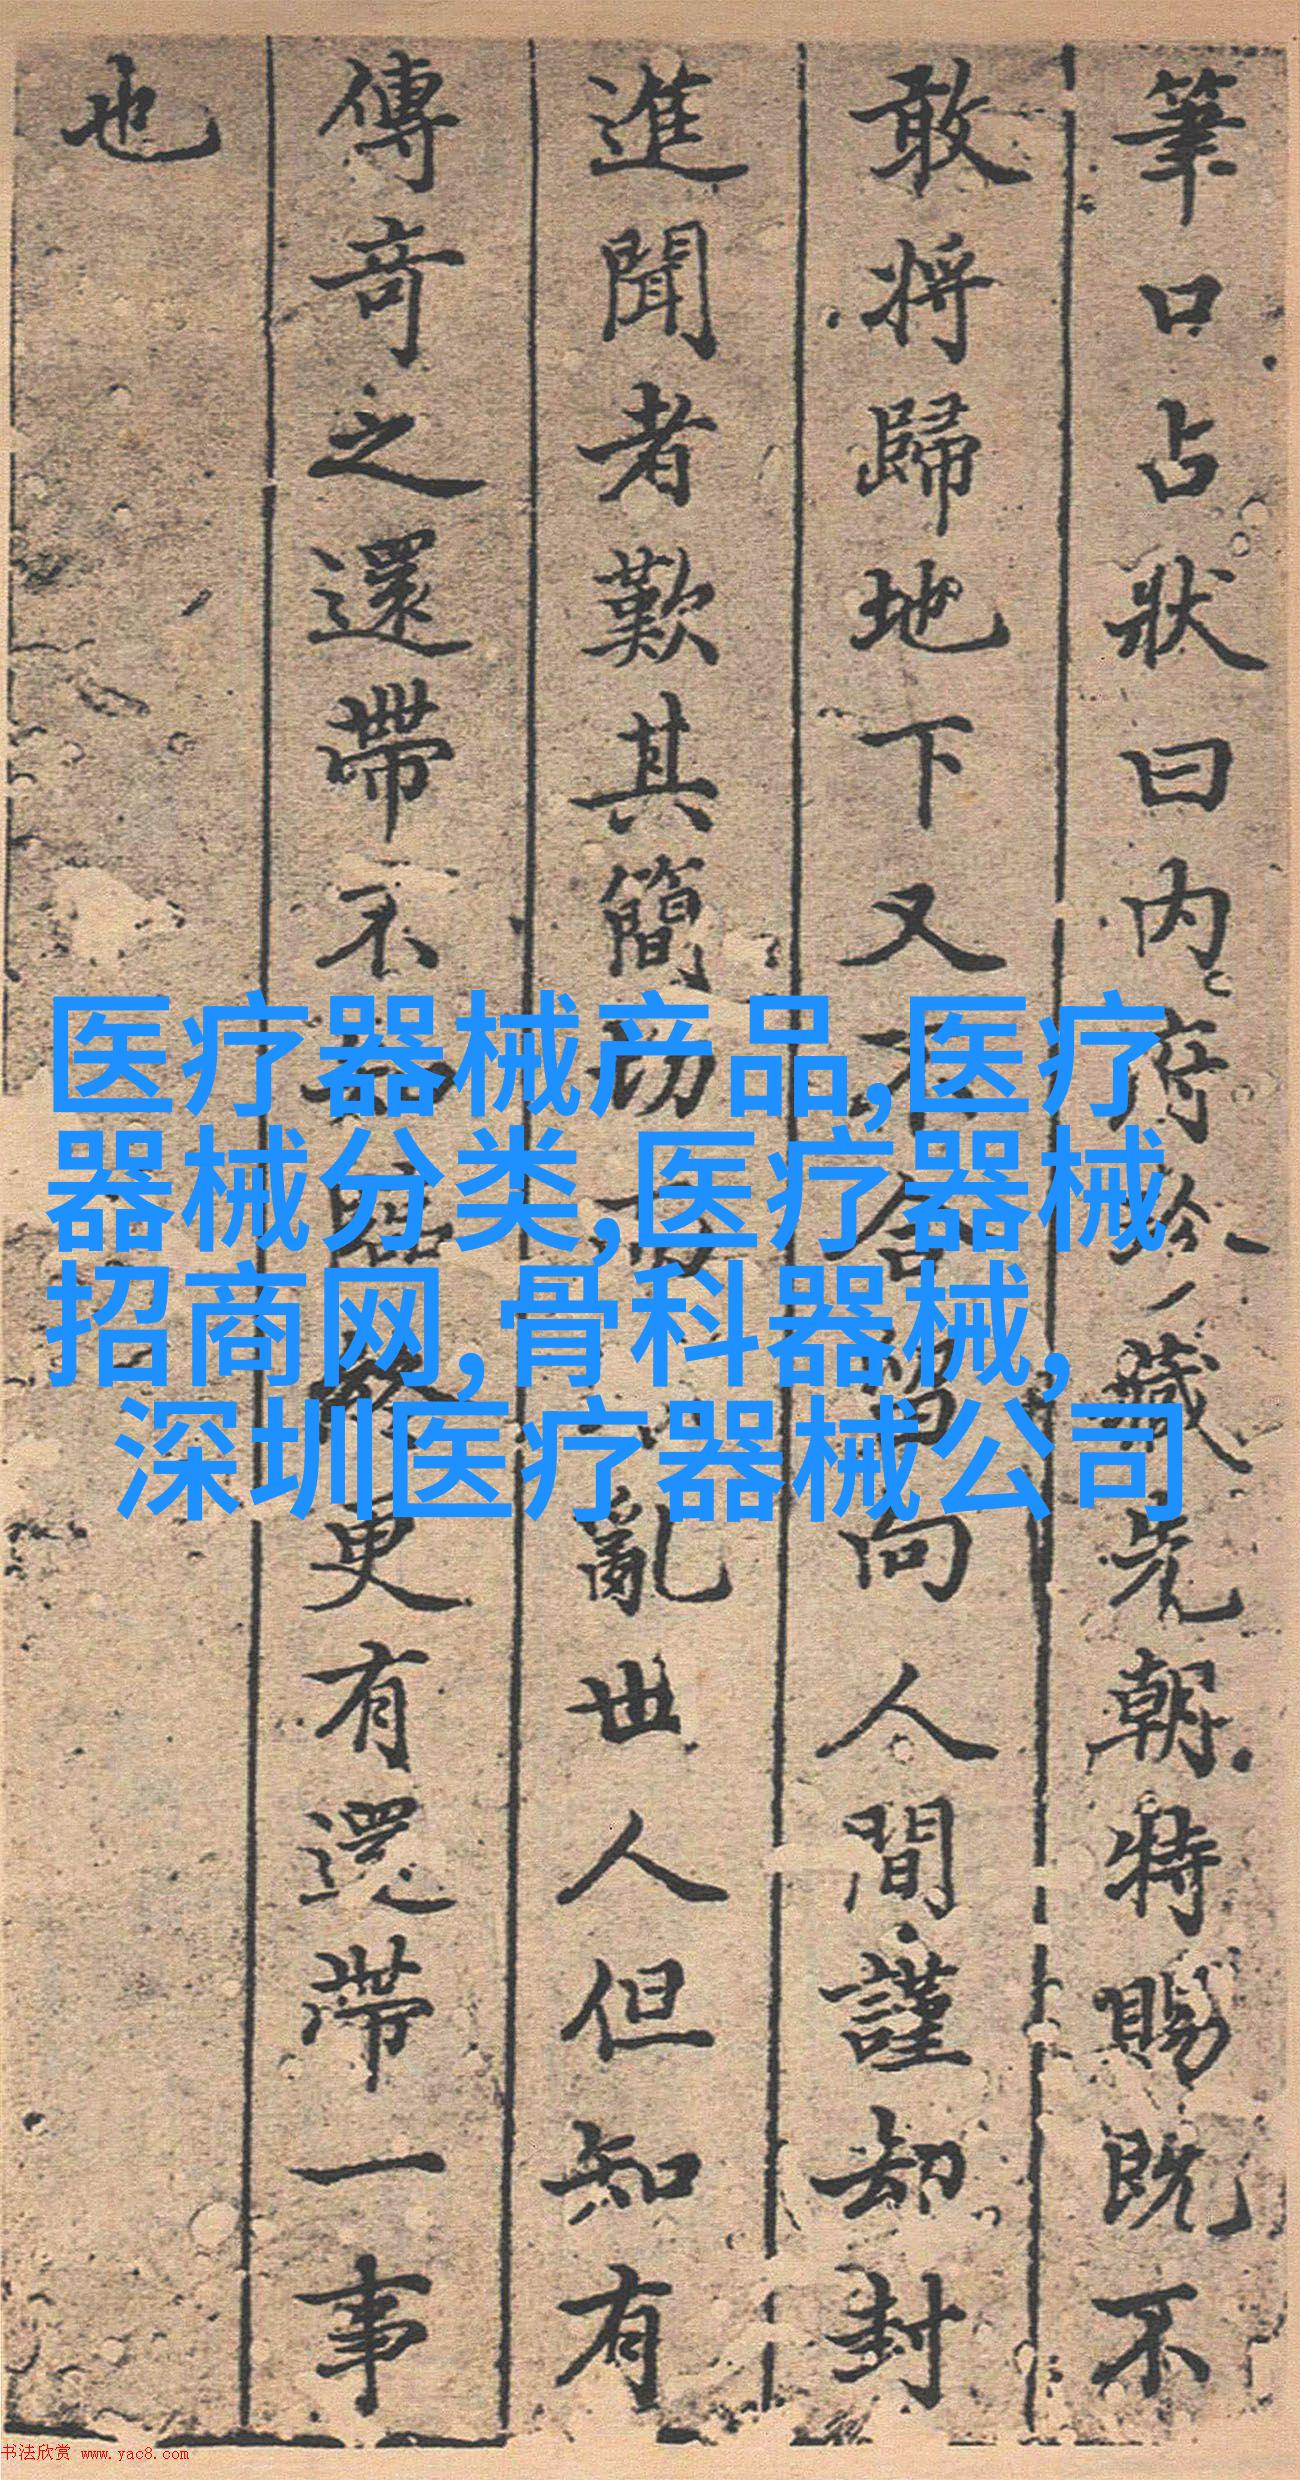 筆口占狀曰内府珎藏先朝特賜既不
敢將歸地下又不合留向人間謹却封
進聞者歎其簡切而不亂世人但知有
傳奇之還帶不知臨終更有還帶一事
也
医疗器械产品,医疗
器械分类,医疗器械
招商网,骨科器械,
深圳医疗器械公司
书法欣赏 www.yac8.com